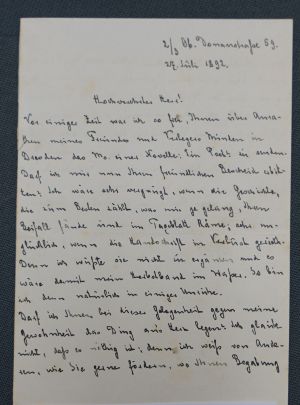 2/3 Ob. Donaustraße 59.
27. Juli 1892.
Hochverehrter Herr!
Vor einiger Zeit war ich so frei Ihnen über Anra-
then meines Freundes und Verlegers Minden in
Dresden das Mo. eines Novelle: Ein Poet: zu senden.
Darf ich mir nun Ihren freundlichen Bescheid erbit-
ten? Ich wäre sehr vergnügt, wenn die Geschichte,
die zum Besten zählt, was mir je gelang, Ihren
Beifall fände und im Tageblatt Räume; sehr un-
glücklich, wenn die Handschrift in Verlust gerieth.
Denn ich wüßte sie nicht zu ergänzen und es
wäre damit mein Herbstband im Wasser. So bin
ich denn natürlich in einiger Unruhe.
Darf ich Ihnen bei dieser Gelegenheit gegen meine
Gewohnheit das Ding ans Herz legen? Ich glaube
nicht, daß es nöthig ist; denn ich weiß von Ande-
ren, wie Sie gerne fördern, wo Ihnen Begabung